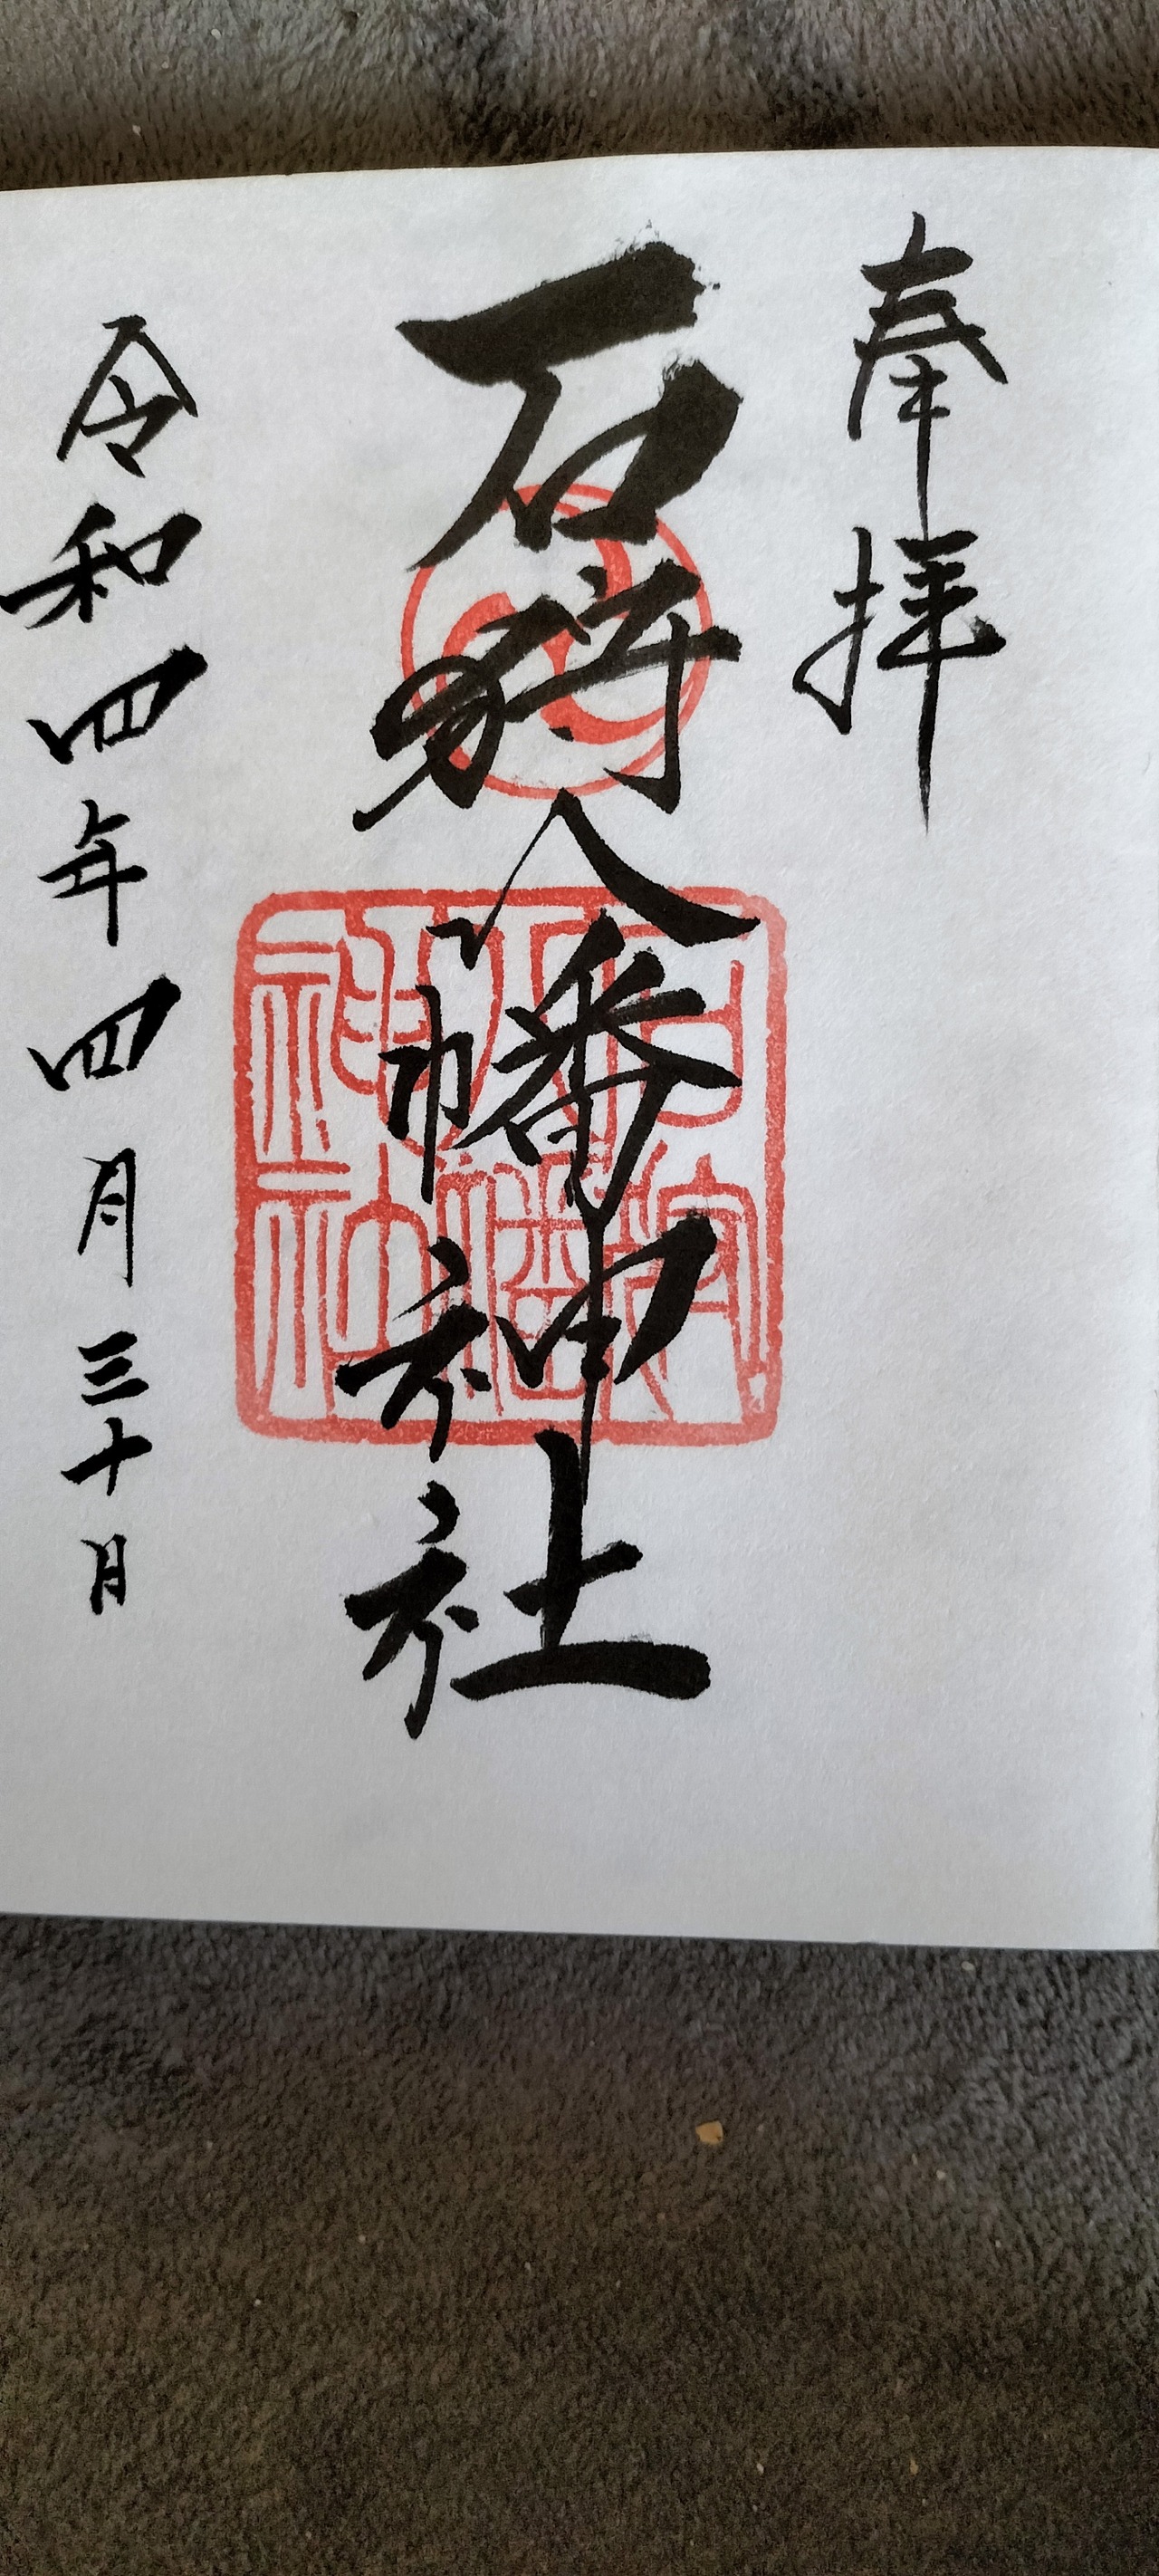 奉拝
石狩八幡神社
石狩八幡神社
令和四年四月三十日